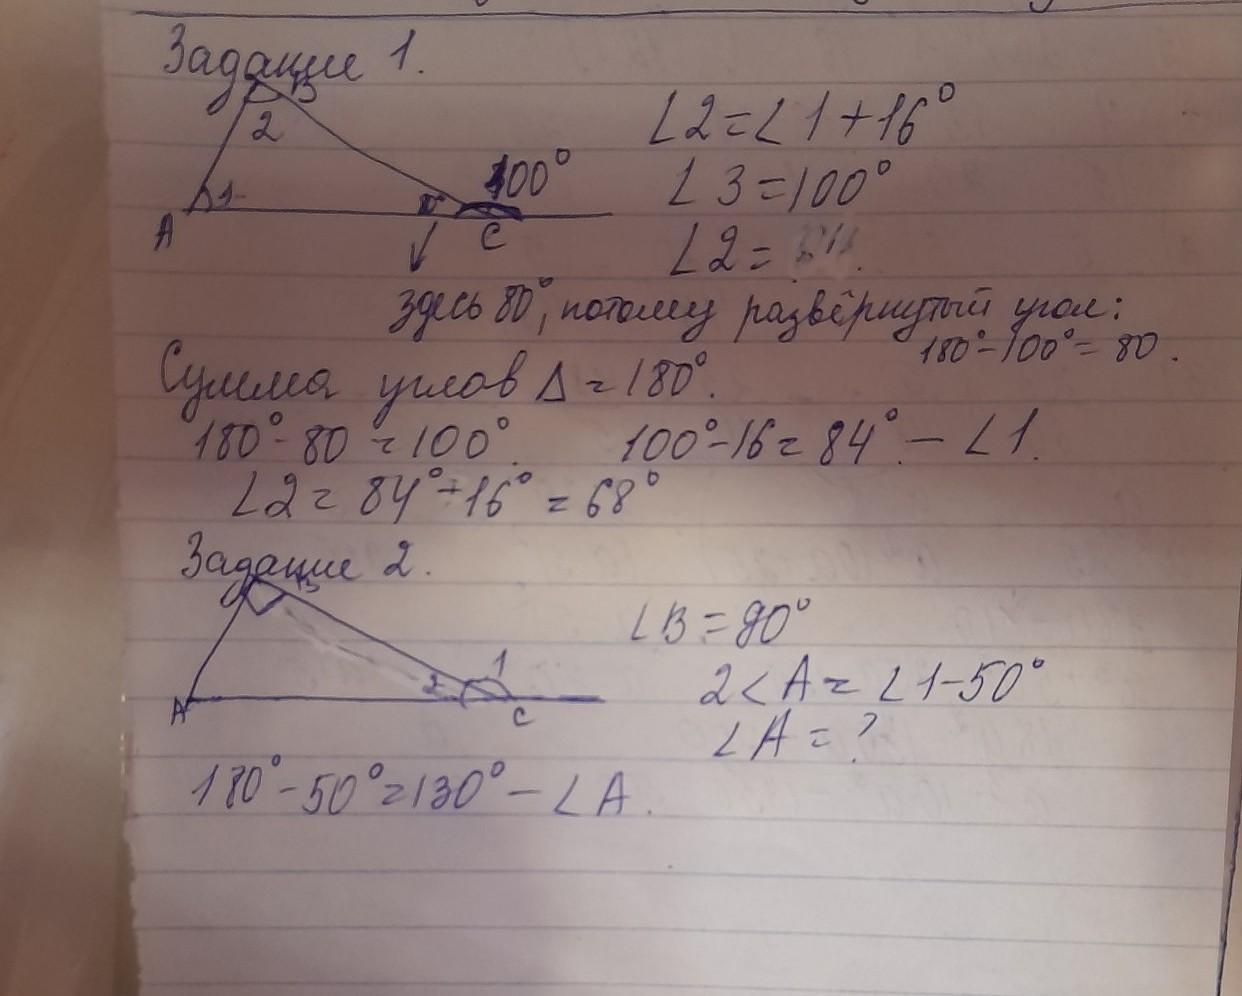 Задание 1.
B
2
∠2=∠1+16°
100°
∠3=100°
1
A
C
∠2=
здесь 80°, потому развёрнутый угол:
180°-100°=80.
Сумма углов Δ=180°.
180°-80=100°. 100°-16=84°.-∠1.
∠2=84°-16°=68°
Задание 2.
B
∠B=90°
1
2
2∠A=∠1-50°
A
C
∠A=?
180°-50°=130°-∠A.